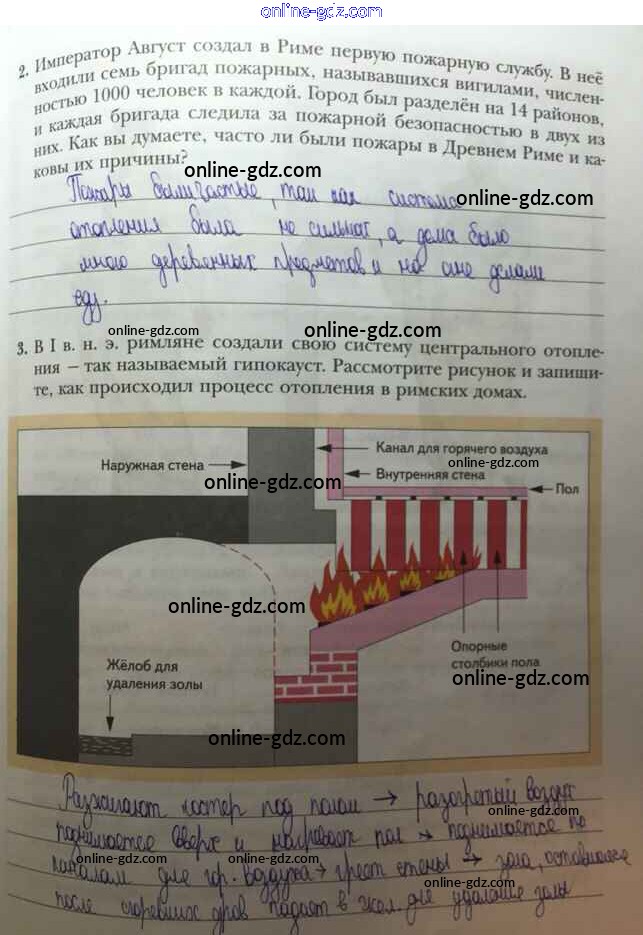 online-gdz.com
2. Император Август создал в Риме первую пожарную службу. В неё
входили семь бригад пожарных, называвшихся вигилами, числен-
ностью 1000 человек в каждой. Город был разделён на 14 районов,
и каждая бригада следила за пожарной безопасностью в двух из
них. Как вы думаете, часто ли были пожары в Древнем Риме и ка-
ковы их причины?
online-gdz.com
online-gdz.com
Пожары были частые, так как система
отопления была не сильная, а дома было
много деревенных предметов и на огне делали
еду.
online-gdz.com
online-gdz.com
3. В I в. н. э. римляне создали свою систему центрального отопле-
ния – так называемый гипокауст. Рассмотрите рисунок и запиши-
те, как происходил процесс отопления в римских домах.
Канал для горячего воздуха
online-gdz.com
Наружная стена
Внутренняя стена
online-gdz.com
Пол
online-gdz.com
Опорные
столбики пола
Жёлоб для
удаления золы
online-gdz.com
online-gdz.com
Разжигают костер под полом → разогретый воздух
online-gdz.com
поднимается вверх и нагревает пол → поднимается по
online-gdz.com
online-gdz.com
каналам для гор. воздуха → греет стены → зола, оставшаяся
online-gdz.com
после сгоревших дров падает в жел. для удаления золы